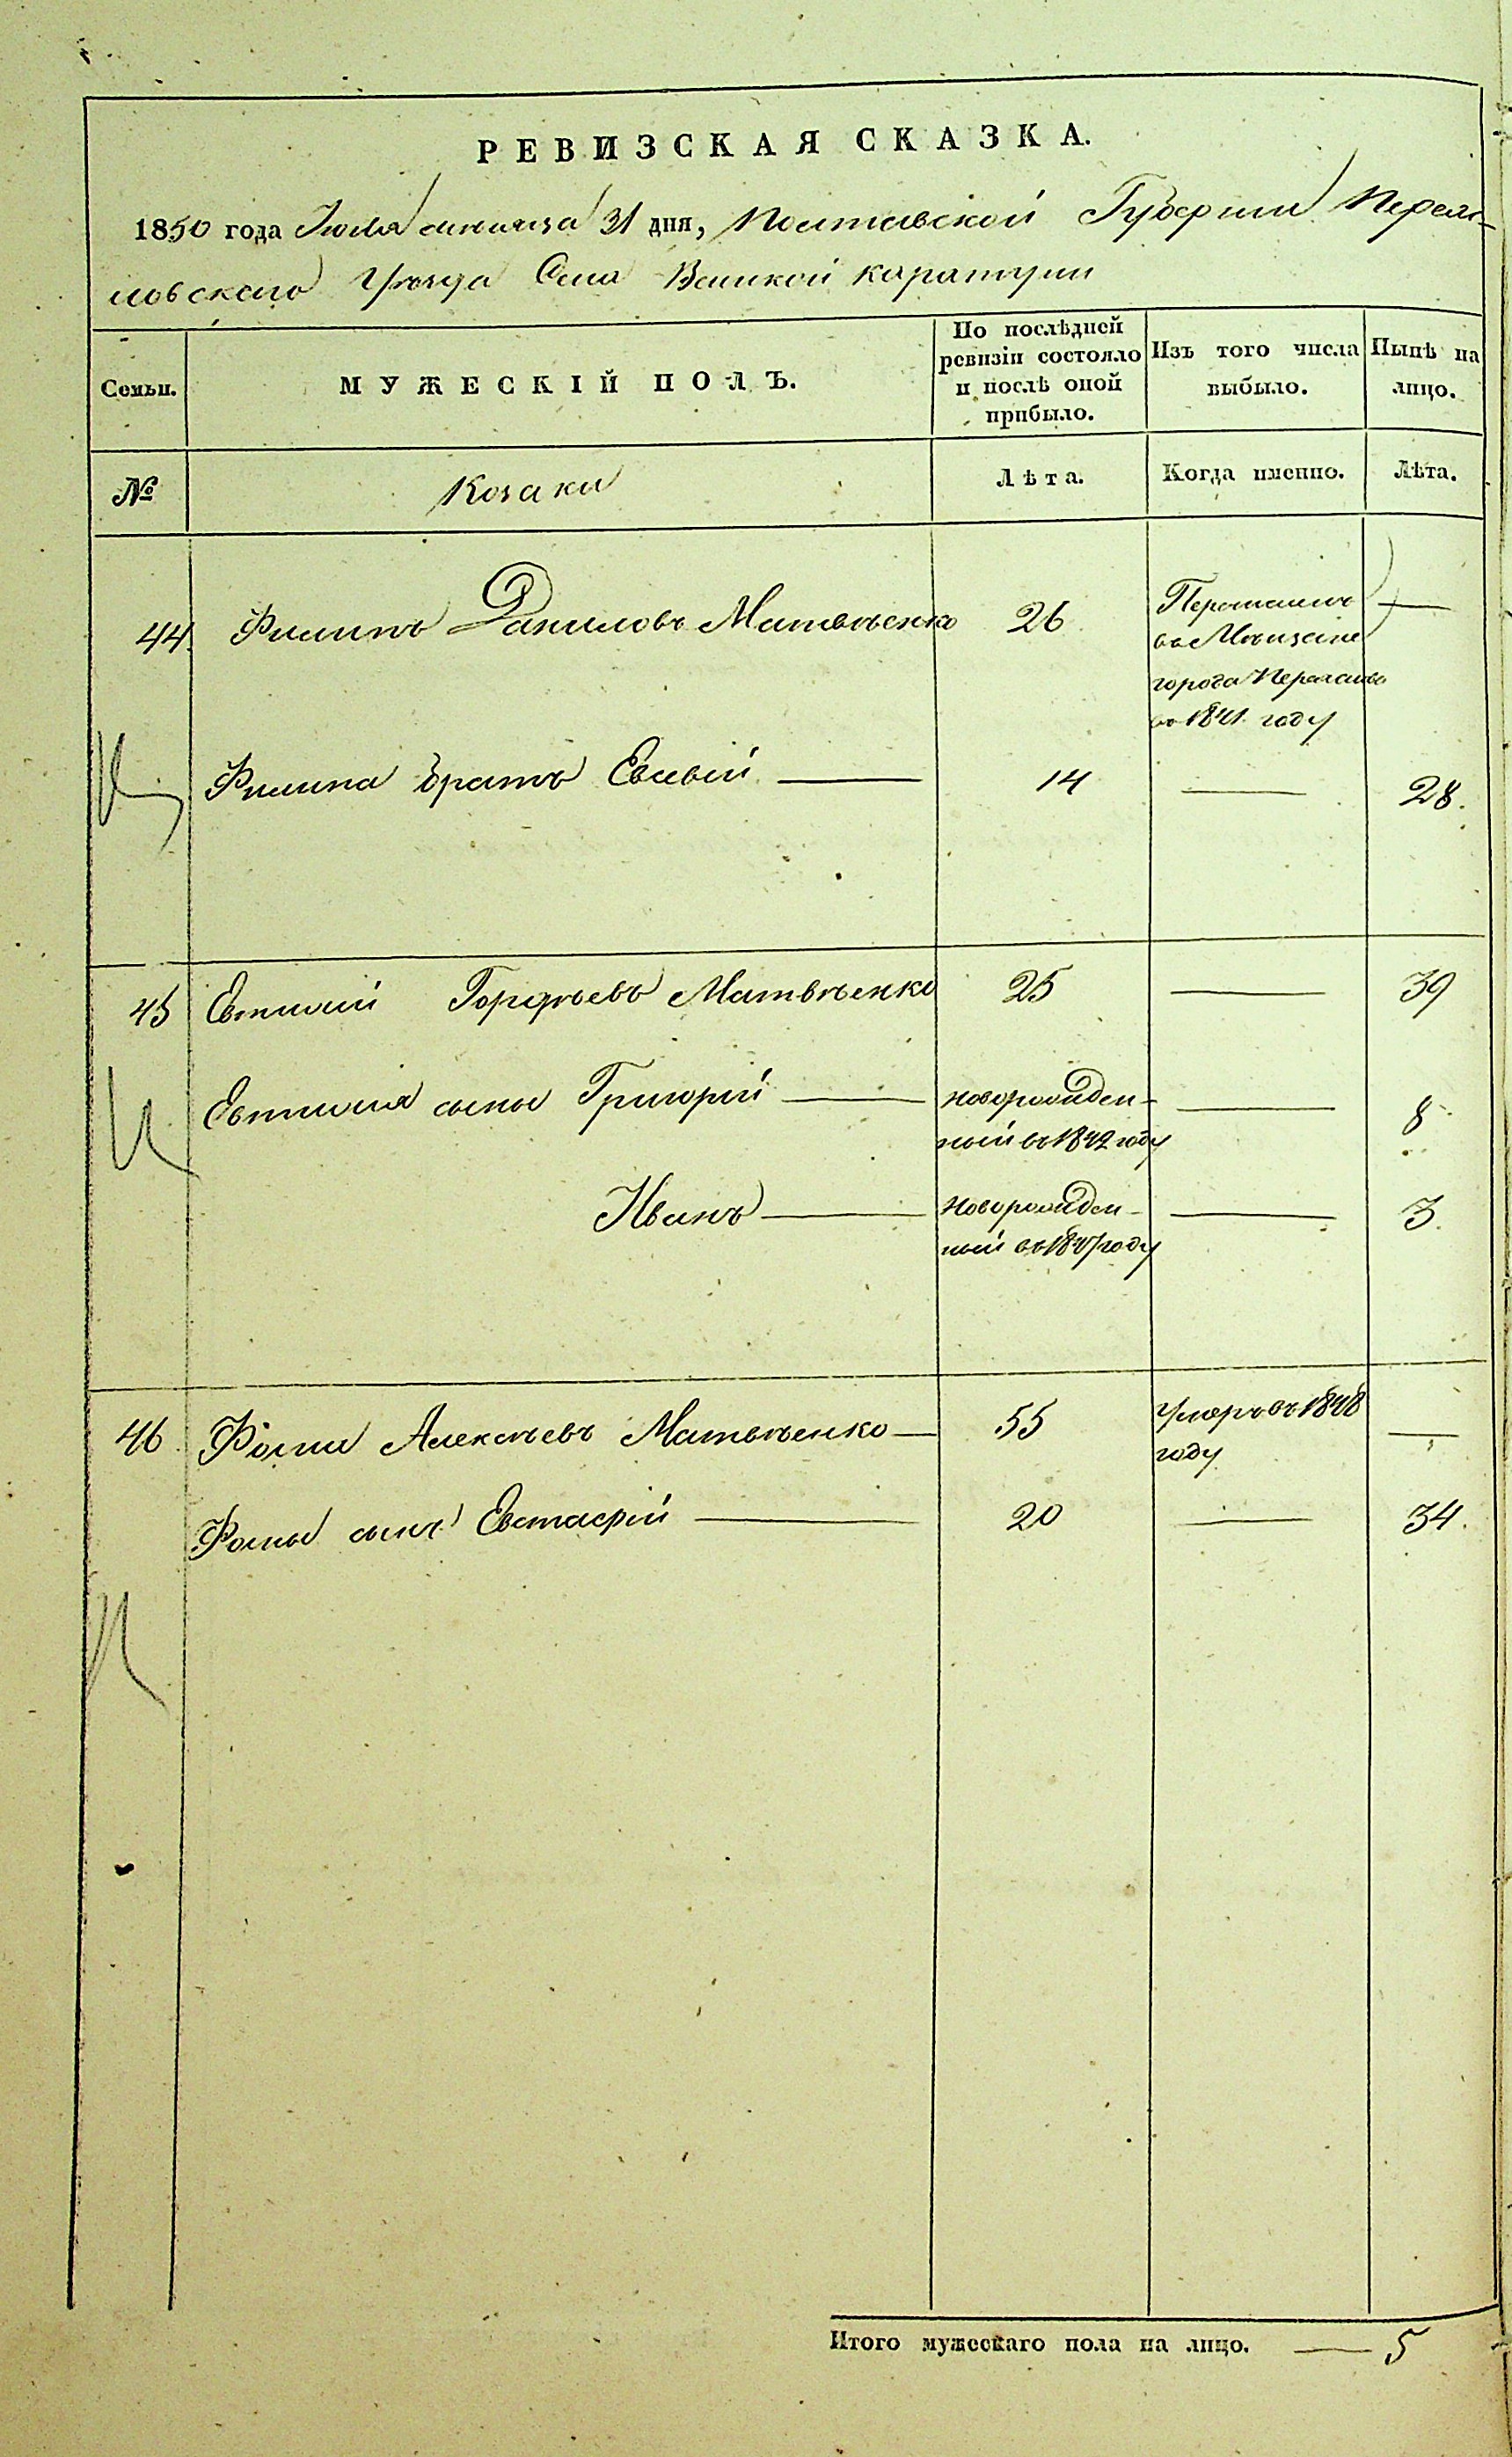 РЕВИЗСКАЯ СКАЗКА.
1850 года Іюля мѣсяца 31 дня, Полтавской Губерніи Переяс-
ловскаго Уѣзда Села Великой Каратули
Семьи. МУЖЕСКІЙ ПОЛЪ. По послѣдней ревизіи состояло и послѣ оной прибыло. Изъ того числа выбыло. Нынѣ на лицо.
№ Козаки Лѣта. Когда именно. Лѣта.
44. Филипъ Даниловъ Матвѣенко 26 Перечисленъ —
въ Мѣщане
города Переяслава
въ 1841 году
Филипа братъ Евсевій — 14 — 28.
45 Евтихій Гордѣевъ Матвѣенко 25 — 39
Евтихія сыны Григорій — новорожден- — 8
ный въ 1842 году
Иванъ — новорожден- — 3.
ный въ 1847 году
46 Фома Алексѣевъ Матвѣенко — 55 умеръ въ 1848 —
году
Фомы сынъ Евстафій — 20 — 34.
Итого мужескаго пола на лицо. — 5